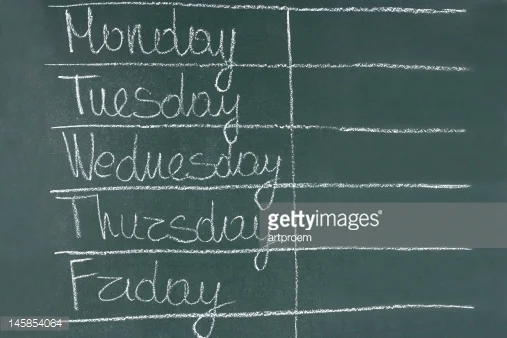 Monday
Tuesday
Wednesday
Thursday
gettyimages®
artproem
Friday
145854064